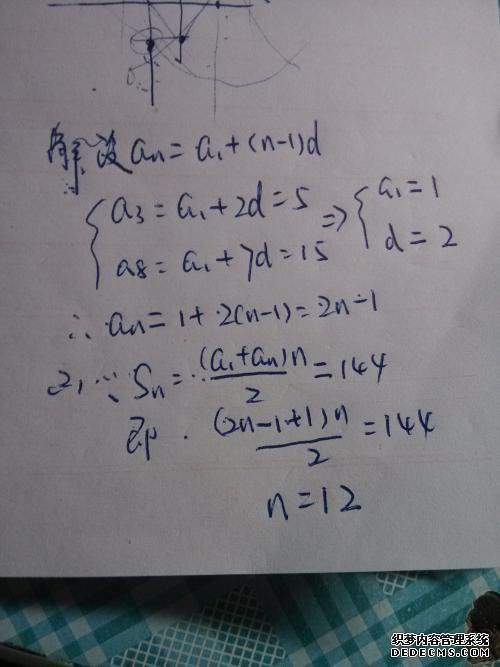 解 设 an = a1 + (n-1)d
{ a3 = a1 + 2d = 5 ⇒ { a1 = 1
a8 = a1 + 7d = 15 d = 2
∴ an = 1 + 2(n-1) = 2n-1
2, ∵ Sn = (a1+an)n / 2 = 144
即 (2n-1+1)n / 2 = 144
n = 12
织梦内容管理系统
DEDECMS.COM